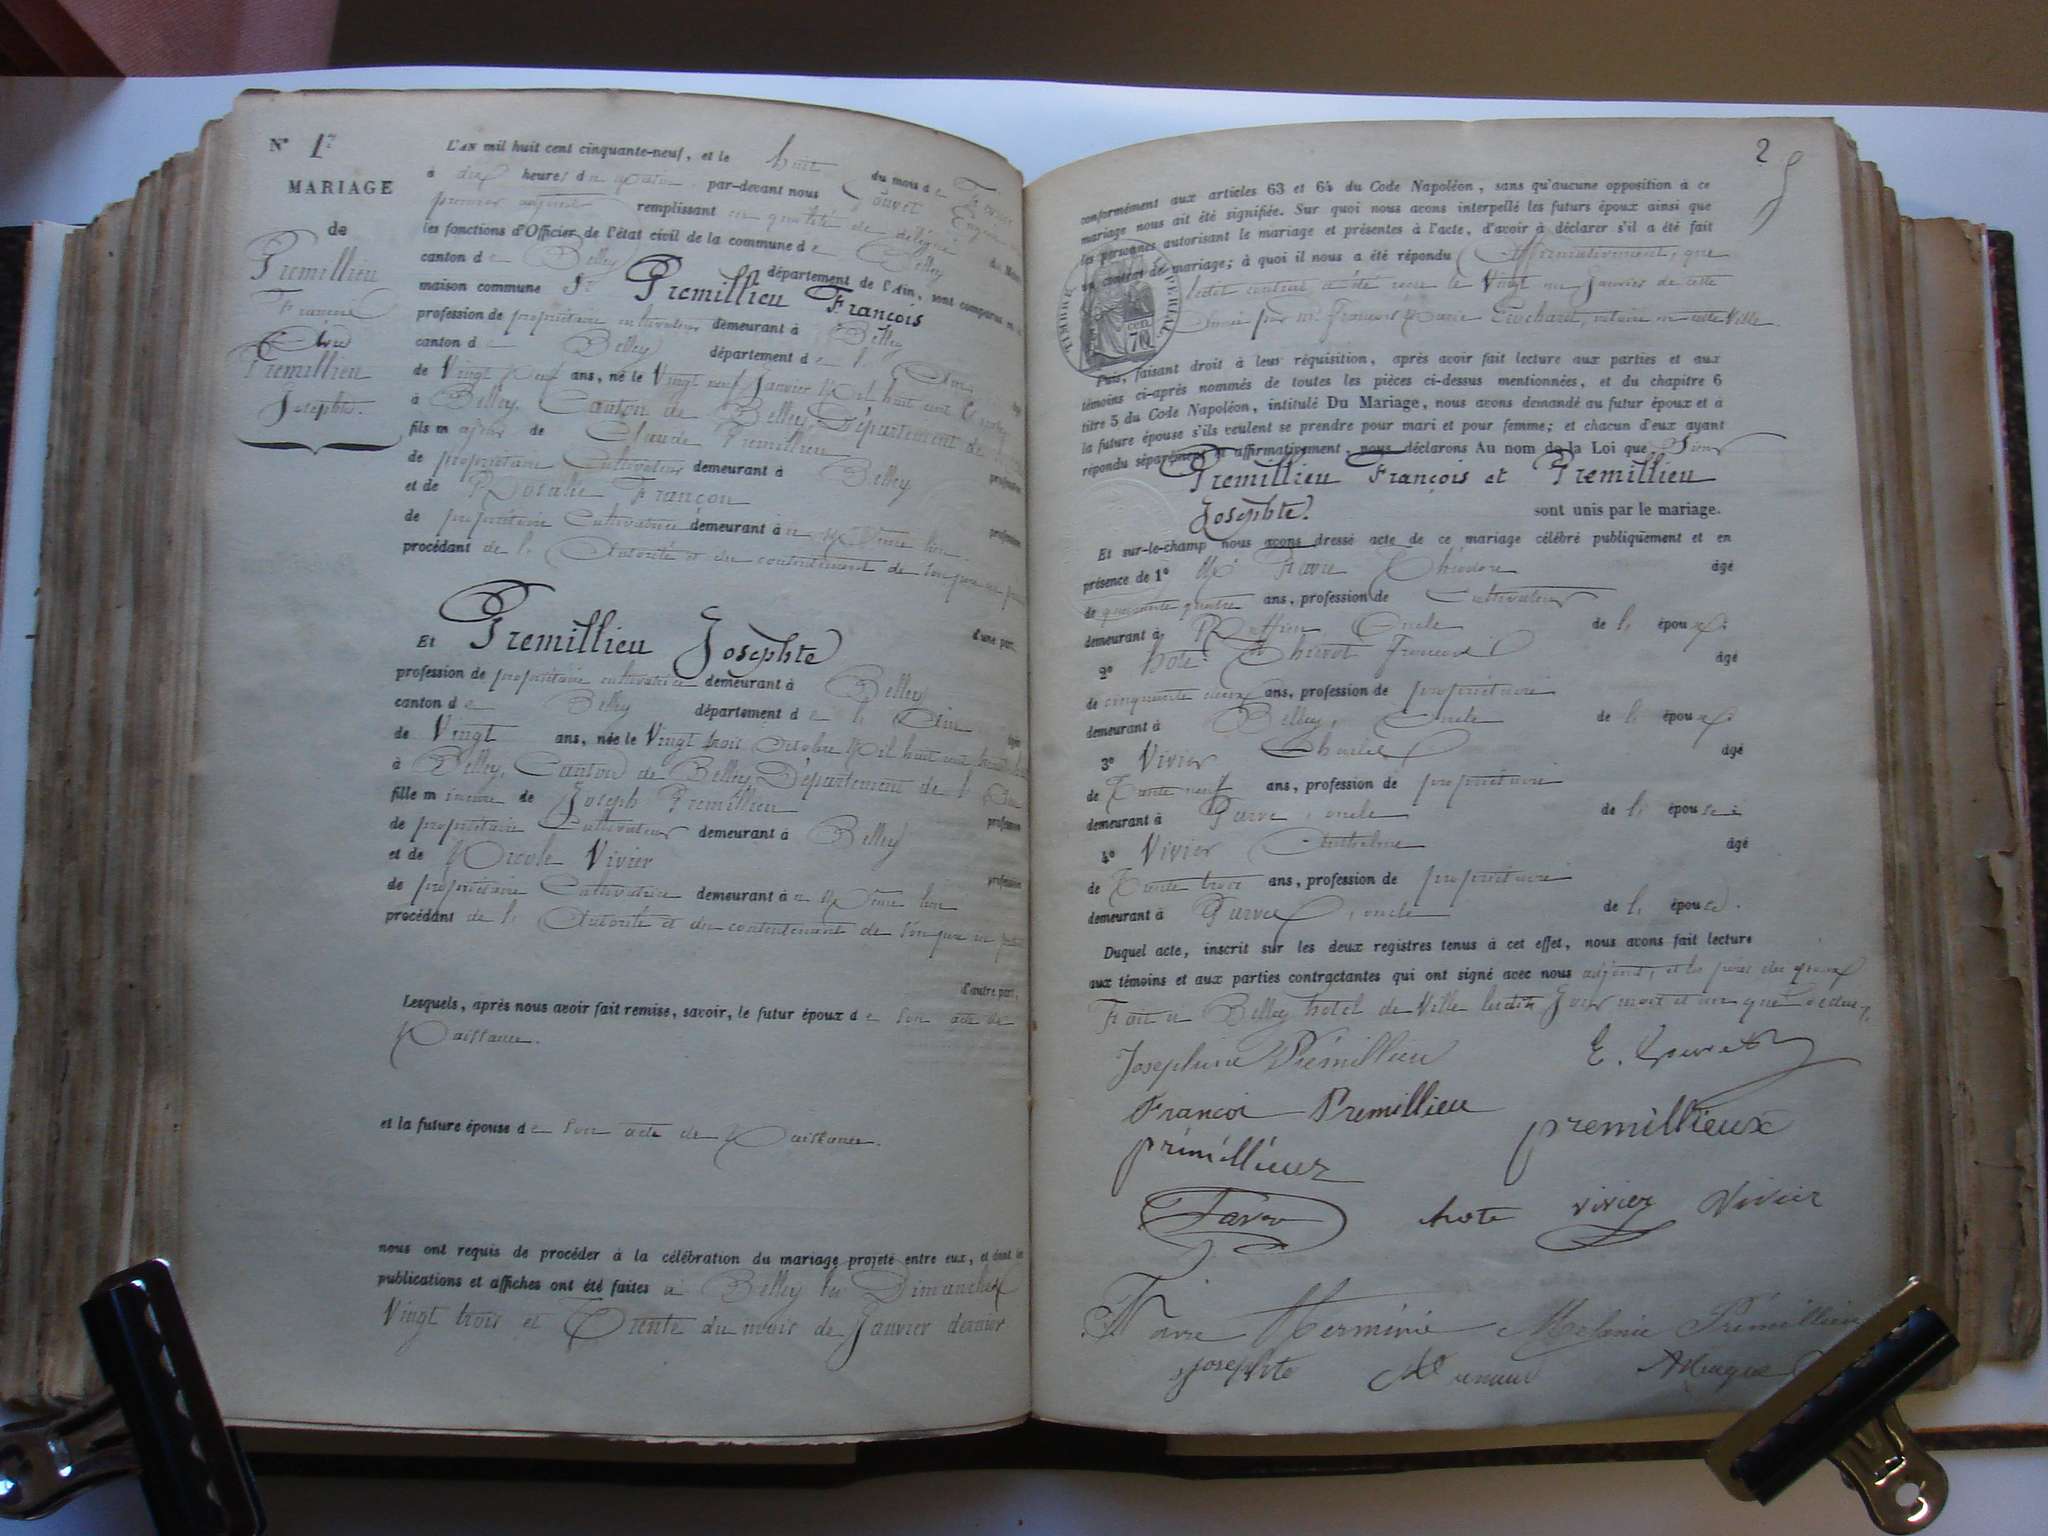 N° 1er
MARIAGE
de
Premillieu
François
Et
Premillieu
Josephte.
L'AN mil huit cent cinquante-neuf, et le huit du mois de Février
à dix heures du matin par-devant nous
premier adjoint remplissant en qualité de délégué du Maire
les fonctions d'Officier de l'état civil de la commune de Belley
canton de Belley département de l'Ain, sont comparus en la
maison commune Sr Premillieu François
profession de propriétaire cultivateur demeurant à Belley
canton de Belley département de l'Ain
de Vingt neuf ans, né le Vingt neuf Janvier Mil huit cent
à Belley, Canton de Belley, Département de
fils majeur de Claude Premillieu
de propriétaire Cultivateur demeurant à Belley profession
et de Rosalie Françon
de propriétaire Cultivatrice demeurant à même lieu profession
procédant de l'Autorité et du consentement de son père
d'une part.
Et Premillieu Josephte
profession de propriétaire cultivatrice demeurant à Belley
canton de Belley département de l'Ain
de Vingt ans, née le Vingt trois Octobre Mil huit cent
à Belley, Canton de Belley, Département de l'Ain
fille mineure de Joseph Premillieu
de propriétaire Cultivateur demeurant à Belley profession
et de Nicole Vivier
de propriétaire Cultivatrice demeurant à même lieu profession
procédant de l'Autorité et du consentement de son père
d'autre part.
Lesquels, après nous avoir fait remise, savoir, le futur époux de son acte de
Naissance.
et la future épouse de son acte de Naissance.
nous ont requis de procéder à la célébration du mariage projeté entre eux, et dont les
publications et affiches ont été faites à Belley les Dimanches
Vingt trois et Trente du mois de Janvier dernier
2
conformément aux articles 63 et 64 du Code Napoléon, sans qu'aucune opposition à ce
mariage nous ait été signifiée. Sur quoi nous avons interpellé les futurs époux ainsi que
les personnes autorisant le mariage et présentes à l'acte, d'avoir à déclarer s'il a été fait
un contrat de mariage; à quoi il nous a été répondu Affirmativement, que
ledit contrat a été reçu le Vingt un Janvier de cette
année par Me François Marie notaire en cette Ville.
TIMBRE IMPÉRIAL
70 cen.
Puis, faisant droit à leur réquisition, après avoir fait lecture aux parties et aux
témoins ci-après nommés de toutes les pièces ci-dessus mentionnées, et du chapitre 6
titre 5 du Code Napoléon, intitulé Du Mariage, nous avons demandé au futur époux et à
la future épouse s'ils veulent se prendre pour mari et pour femme; et chacun d'eux ayant
répondu séparément et affirmativement, nous déclarons Au nom de la Loi que Sieur
Premillieu François et Premillieu
Josephte. sont unis par le mariage.
Et sur-le-champ nous avons dressé acte de ce mariage célébré publiquement et en
présence de 1° Favre Théodore âgé
de quarante quatre ans, profession de Cultivateur
demeurant à Ruffieu Oncle de l'époux.
2° François âgé
de cinquante deux ans, profession de propriétaire
demeurant à Belley, Oncle de l'époux.
3° Vivier Charles âgé
de Trente neuf ans, profession de propriétaire
demeurant à Parve, oncle de l'épouse
4° Vivier Anthelme âgé
de Trente trois ans, profession de propriétaire
demeurant à Parves, oncle de l'épouse.
Duquel acte, inscrit sur les deux registres tenus à cet effet, nous avons fait lecture
aux témoins et aux parties contractantes qui ont signé avec nous adjoint, et les pères des époux
Fait à Belley hôtel de Ville ledit Jour mois et an que dessus.
Josephine Prémillieu
Francoi Premillieu
premillieux
primillieux
Favre
hote vivier Vivier
Favre Herminie Melanie Prémillieu
Josephte